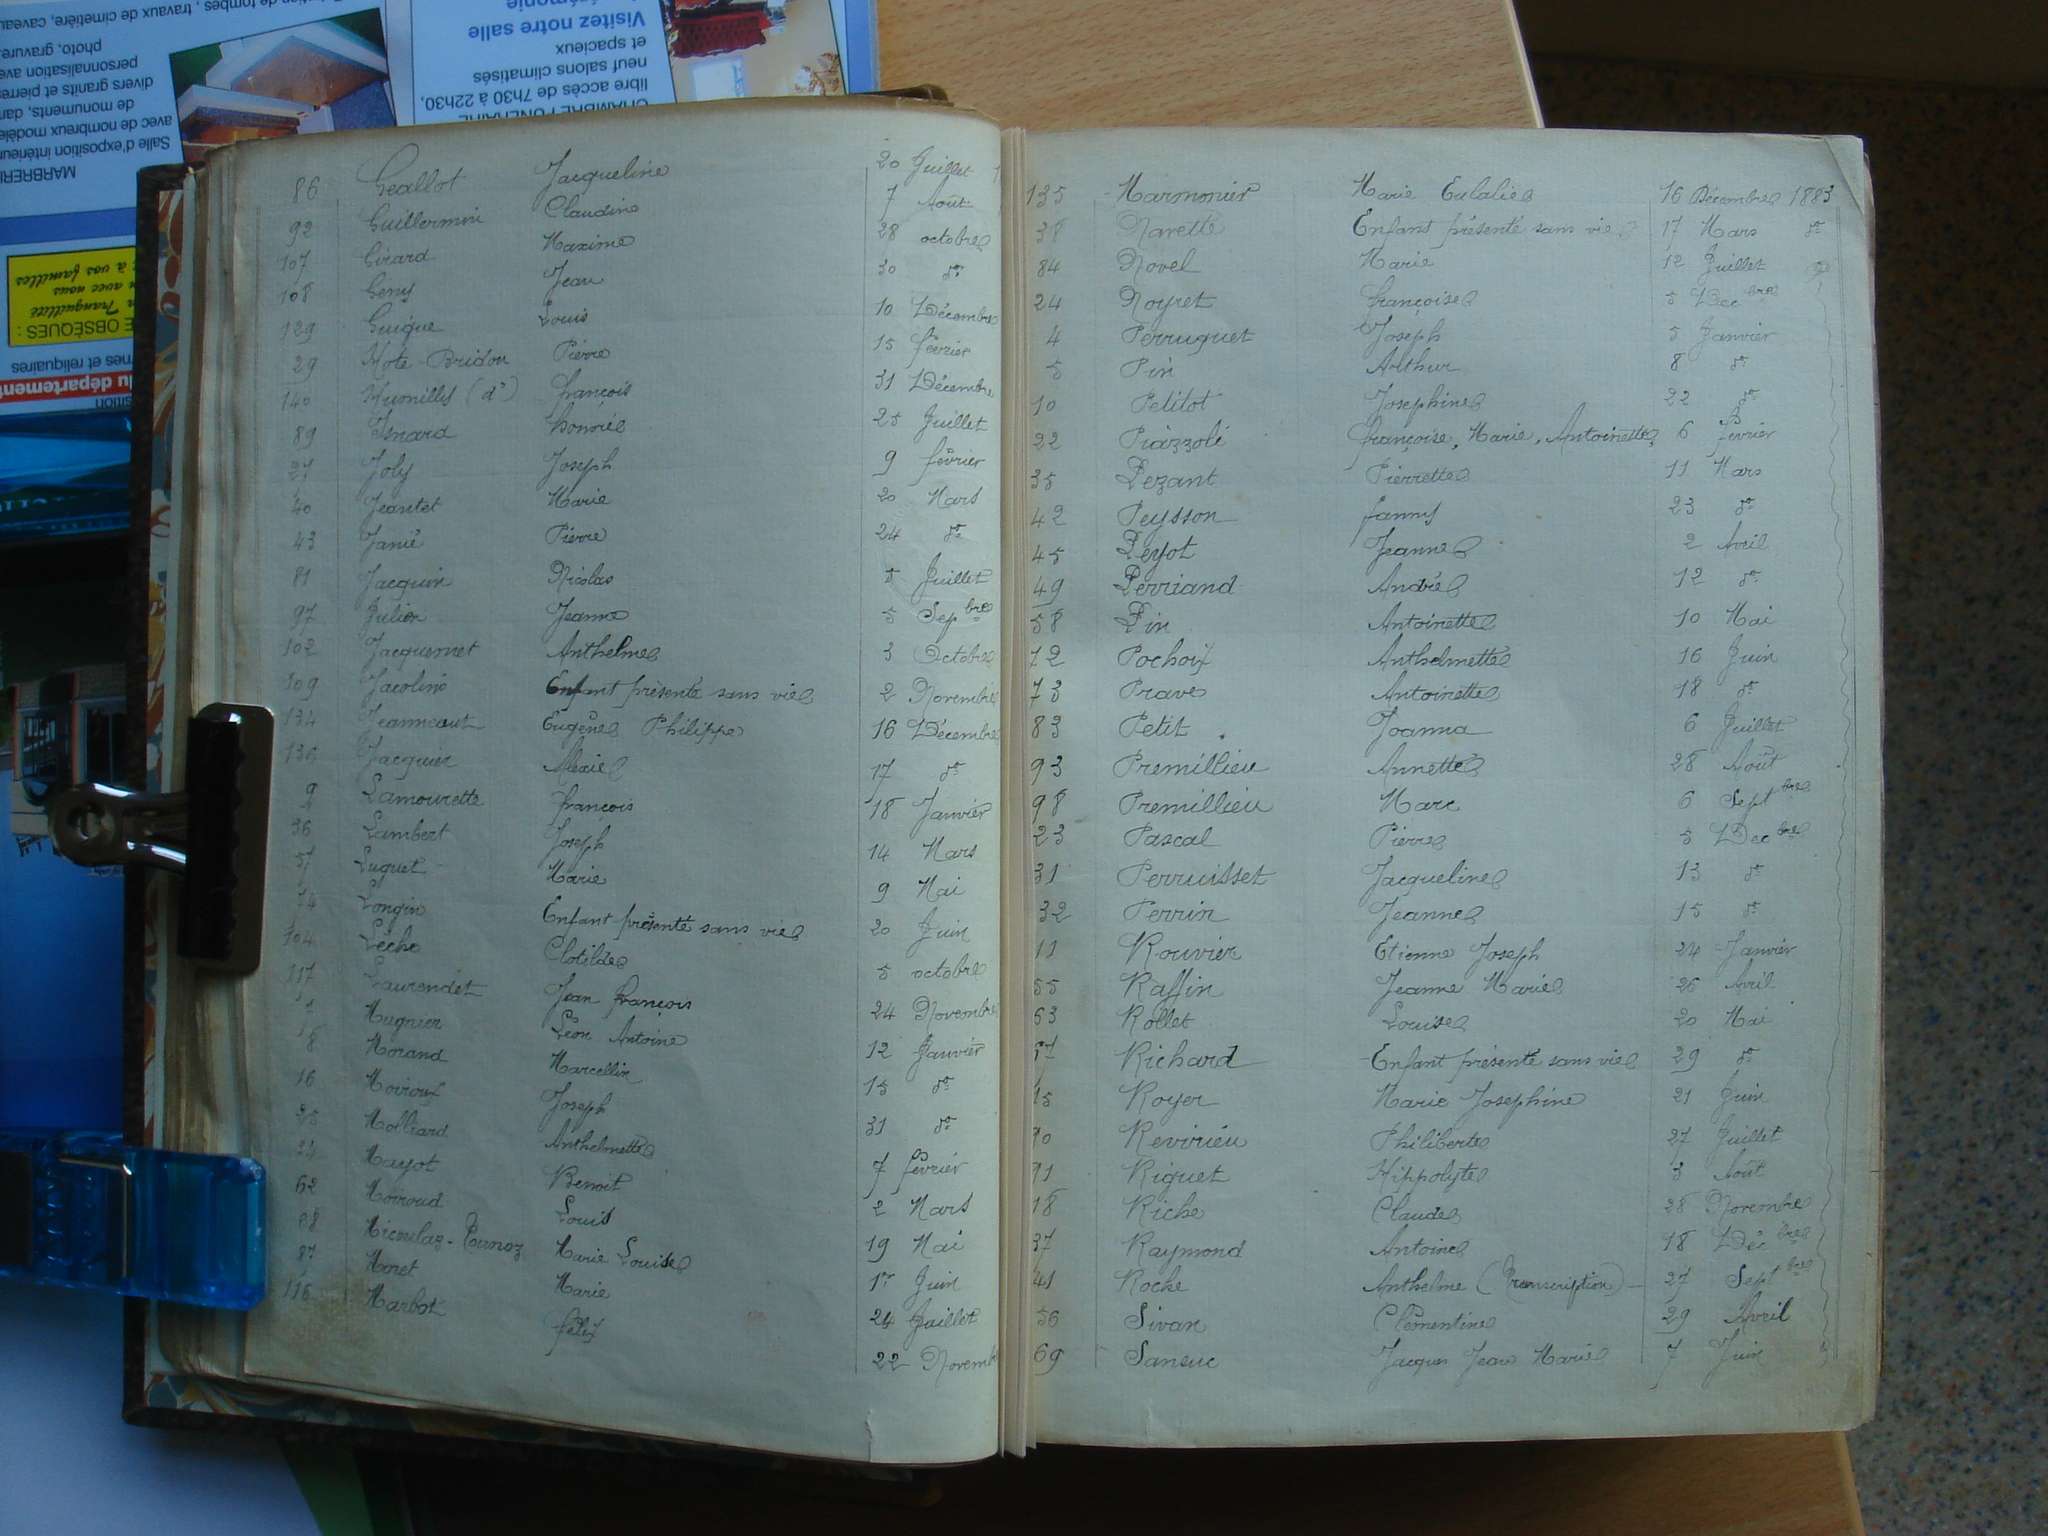 86 Geallot Jacqueline 20 Juillet
92 Guillermin Claudine 7 Août
107 Girard Maxime 28 octobre
108 Geny Jean 30 do
129 Guigue Louis 10 Décembre
29 Hote-Bridon Pierre 15 février
140 (d') François 31 Décembre
89 Isnard honoré 25 Juillet
27 Joly Joseph 9 février
40 Jeantet Marie 20 Mars
43 Janié Pierre 24 do
81 Jacquin Nicolas 5 Juillet
97 Julien Jeanne 5 Sepbre
102 Jacquemet Anthelme 3 Octobre
109 Jacolino Enfant présenté sans vie 2 Novembre
134 Jeanneaut Eugène Philippe 16 Décembre
136 Jacquier Alexie 17 do
9 Lamourette françois 18 Janvier
36 Lambert Joseph 14 Mars
57 Luguet Marie 9 Mai
74 Longin Enfant présenté sans vie 20 Juin
104 Lèche Clotilde 5 octobre
117 Laurendet Jean françois 24 Novembre
Mugnier Léon Antoine 12 Janvier
8 Morand Marcellin 15 do
16 Moiroux Joseph 31 do
25 Molliard Anthelmette 7 février
34 Mayot Benoit 2 Mars
62 Moiroud Louis 19 Mai
68 Micoulaz-Pounoz Marie Louise 1er Juin
87 Moret Marie 24 Juillet
116 Marbot félix 22 Novemb
135 Marmonier Marie Eulalie 16 Décembre 1883
38 Navette Enfant présenté sans vie 17 Mars do
84 Novel Marie 12 Juillet
24 Noyret françoise 5 Decbre
4 Perruquet Joseph 5 Janvier
5 Pin Arthur 8 do
10 Petitot Josephine 22 do
22 Piazzoli françoise, Marie, Antoinette 6 février
35 Pezant Pierrette 11 Mars
42 Peysson fanny 23 do
45 Peyot Jeanne 2 Avril
49 Perriand André 12 do
58 Pin Antoinette 10 Mai
72 Pochoix Anthelmette 16 Juin
73 Prave Antoinette 18 do
83 Petit Joanna 6 Juillet
93 Premillieu Annette 28 Août
98 Premillieu Marc 6 Septbre
23 Pascal Pierre 5 Decbre
31 Perruisset Jacqueline 13 do
32 Perrin Jeanne 15 do
11 Rouvier Etienne Joseph 24 Janvier
55 Raffin Jeanne Marie 26 Avril
63 Rollet Louise 20 Mai
67 Richard Enfant présenté sans vie 29 do
15 Royer Marie Josephine 21 Juin
90 Revirieu Philiberte 27 Juillet
91 Riguet Hippolyte 3 Août
18 Riche Claude 28 Novembre
37 Raymond Antoine 18 Décbre
41 Roche Anthelme (Transcription) 27 Septbre
56 Sivan Clémentine 29 Avril
69 Sansuc Jacques Jean Marie 7 Juin
travaux de cimetière, caveau
photo, gravure
personnalisation ave
divers granits et pierres
de monuments, dan
avec de nombreux modèle
Salle d'exposition intérieur
MARBRERI
Visitez notre salle
et spacieux
neuf salons climatisés
libre accès de 7h30 à 22h30,
CHAMBRE FUNERAIRE
E OBSÈQUES :
Tranquillité
avec nous
à vos familles
et reliquaires
du département